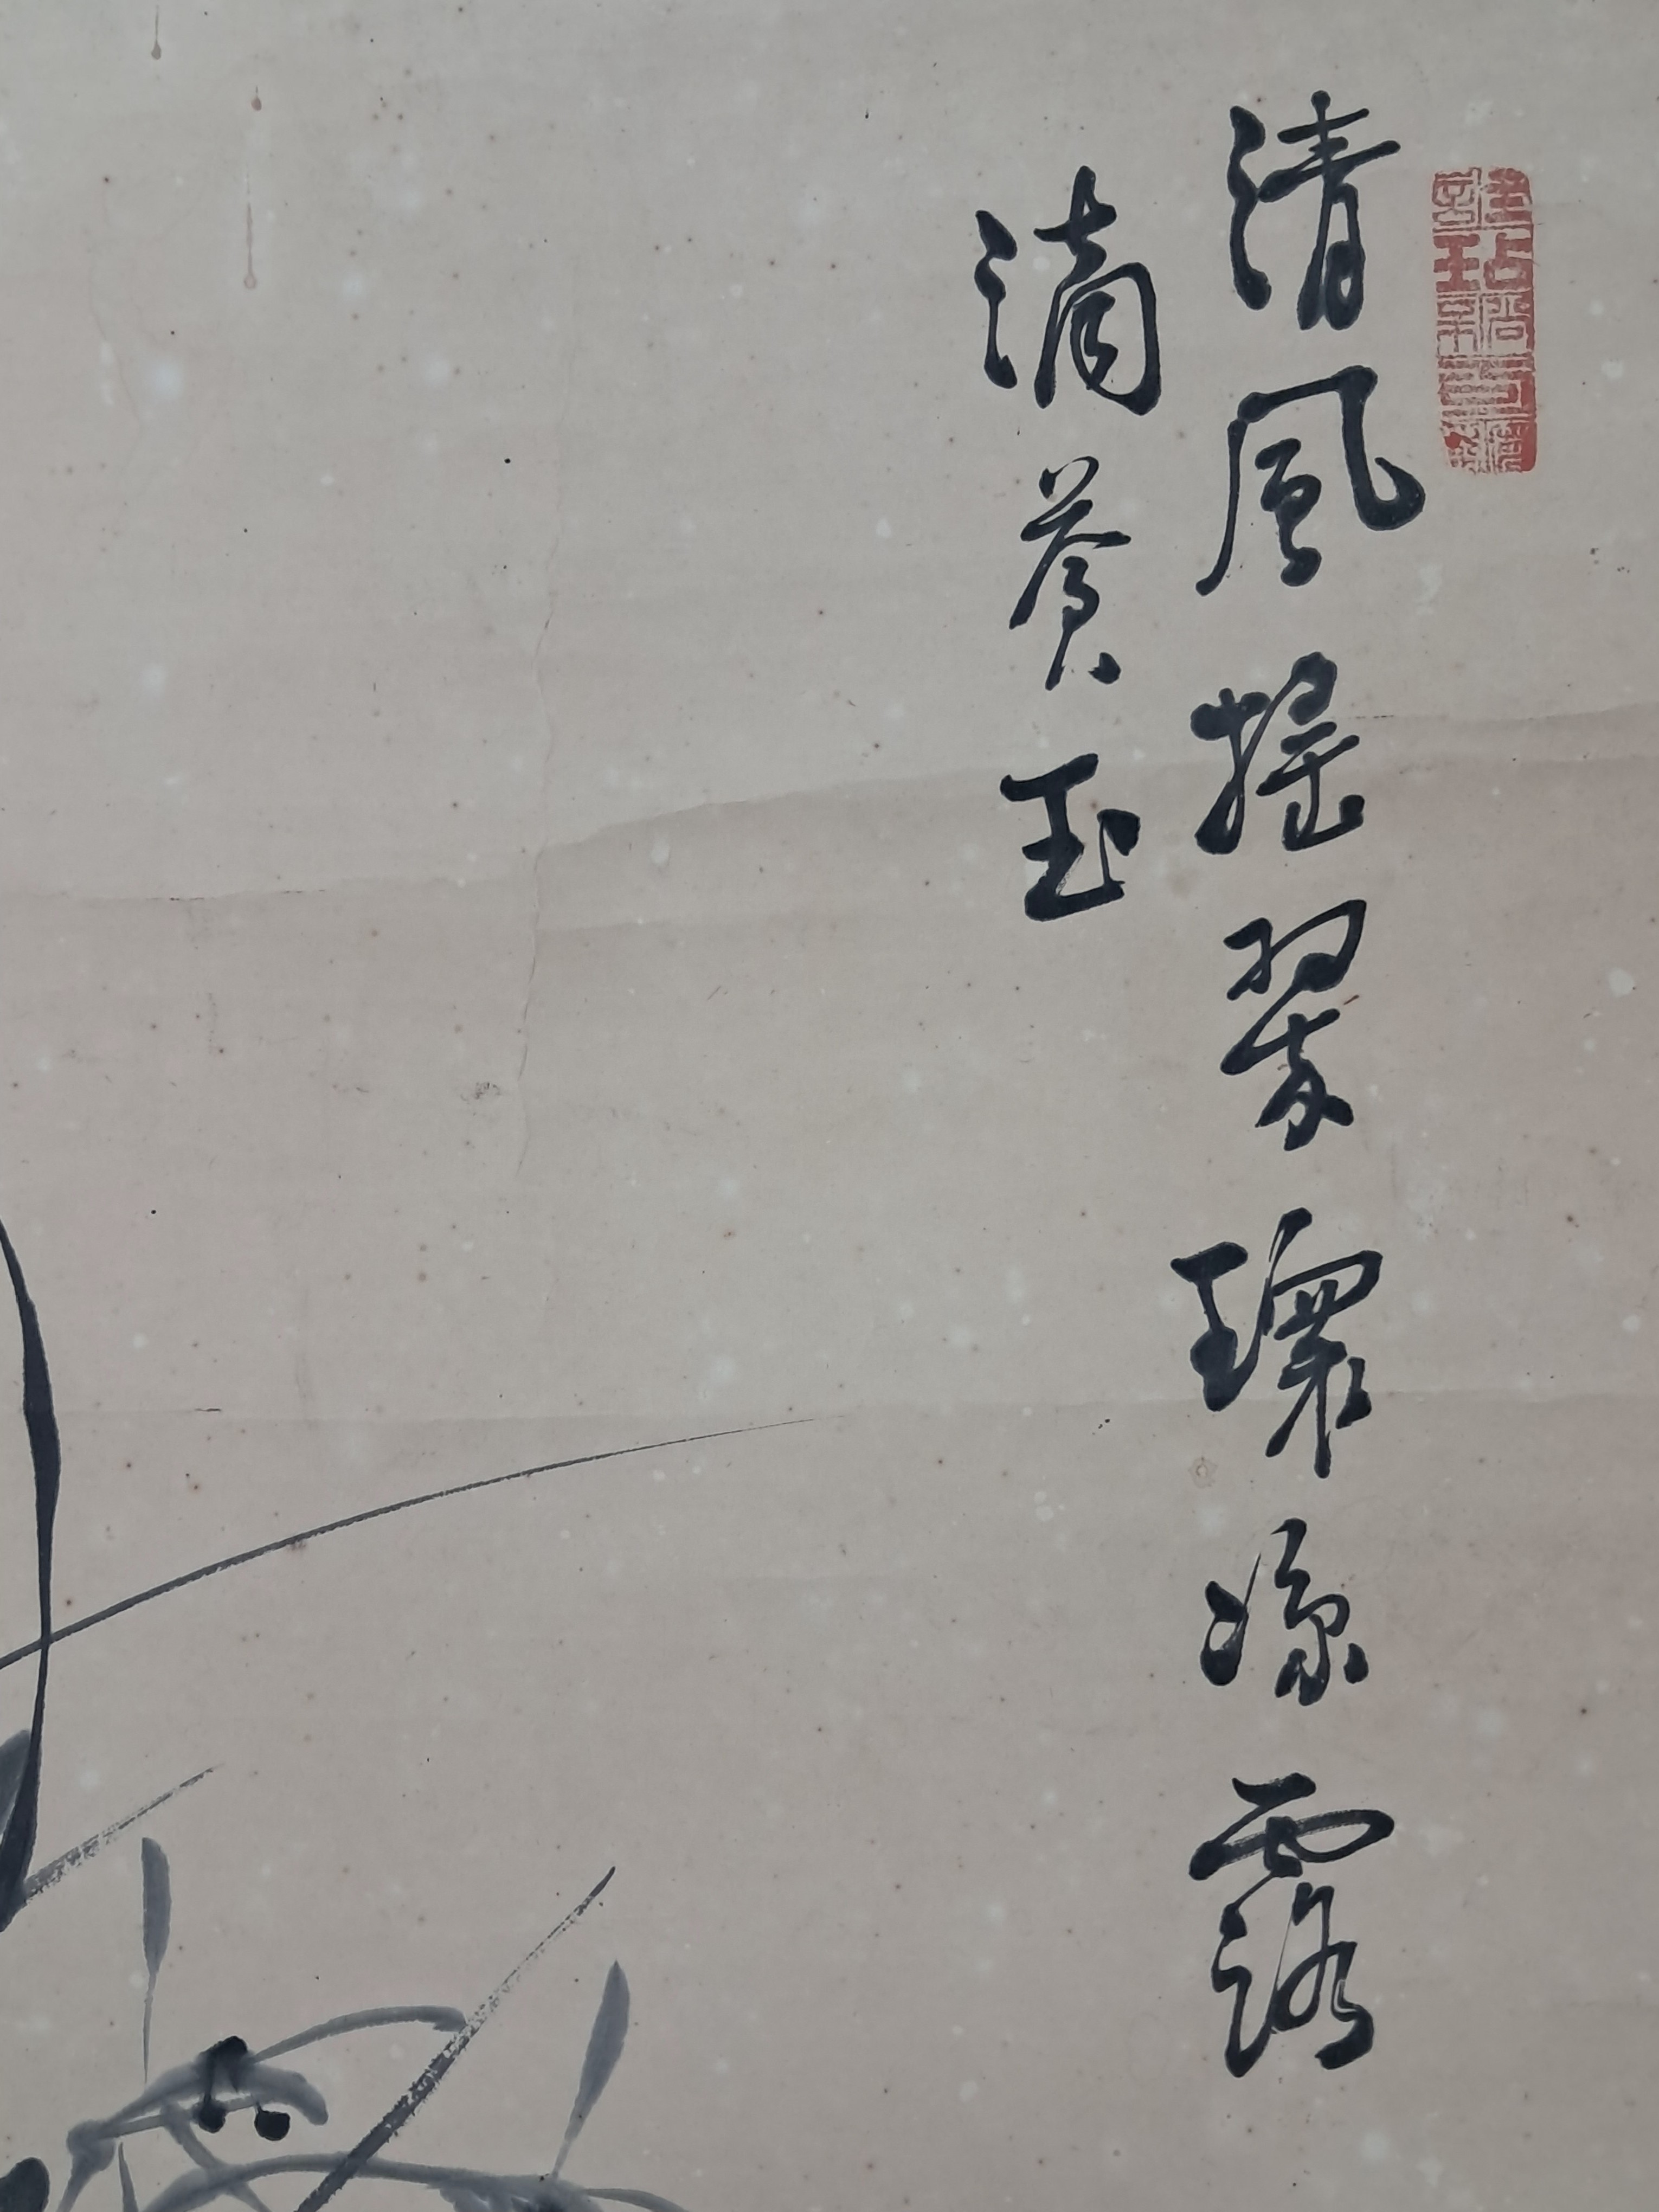 清風搖翠環涼露
滴蒼玉